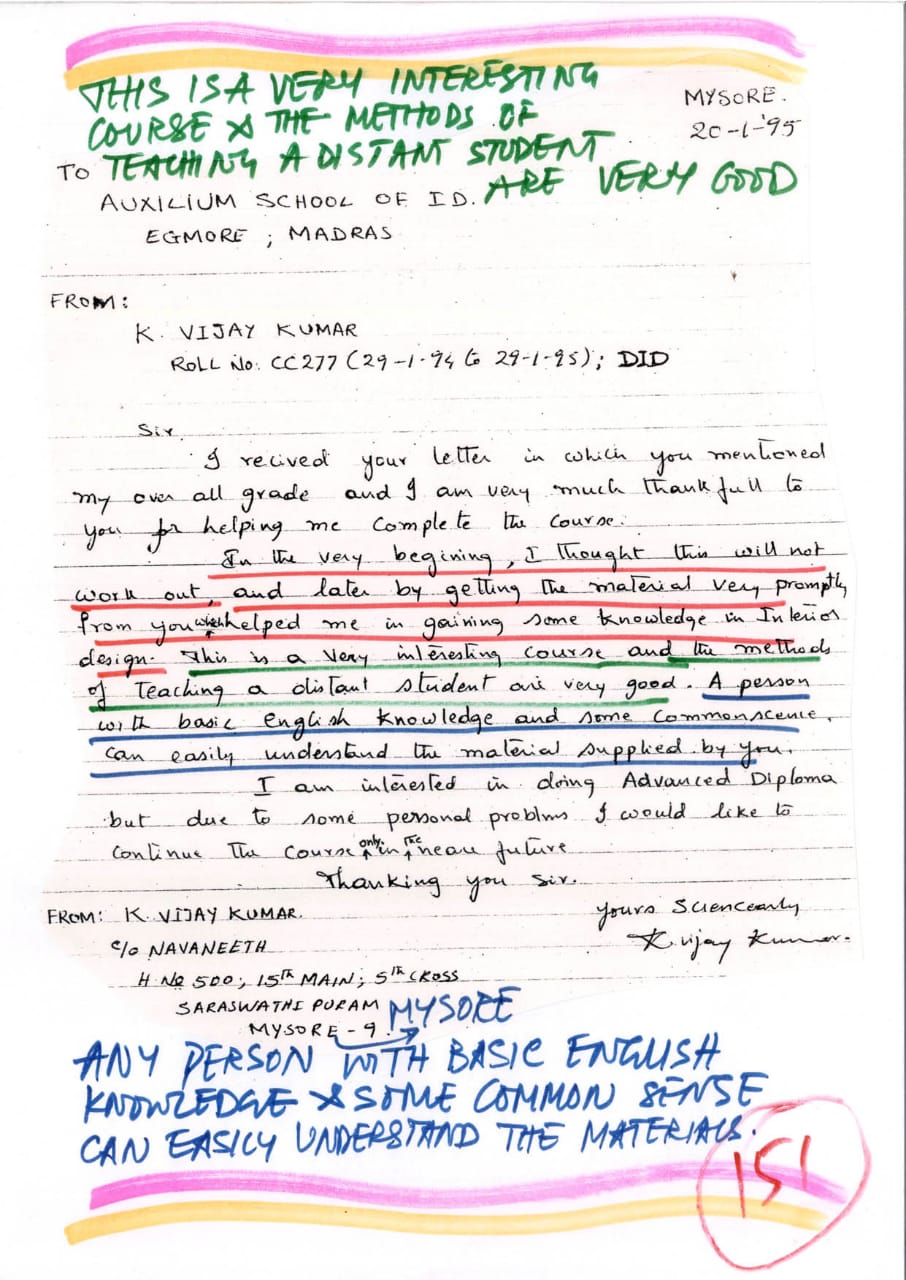 THIS IS A VERY INTERESTING
COURSE & THE METHODS OF
TEACHING A DISTANT STUDENT
ARE VERY GOOD
MYSORE.
20-1-'95
TO
AUXILIUM SCHOOL OF I.D.
EGMORE ; MADRAS
FROM:
K. VIJAY KUMAR
ROLL No: CC277 (29-1-94 to 29-1-95); DID
Sir,
I recived your letter in which you mentioned
my over all grade and I am very much thankfull to
you for helping me complete the course.
In the very begining, I thought this will not
work out, and later by getting the material very promptly
from you which helped me in gaining some knowledge in Interior
design. This is a very interesting course and the methods
of teaching a distant student are very good. A person
with basic english knowledge and some commonscence,
can easily understand the material supplied by you.
I am interested in doing Advanced Diploma
but due to some personal problms I would like to
continue the course only in the neare future
Thanking you Sir.
Yours Sciencearly
K. Vijay Kumar.
FROM: K. VIJAY KUMAR.
C/o NAVANEETH
H No 500; 15th MAIN; 5th CROSS
SARASWATHI PURAM
MYSORE - 9. MYSORE
ANY PERSON WITH BASIC ENGLISH
KNOWLEDGE & SOME COMMON SENSE
CAN EASILY UNDERSTAND THE MATERIALS.
151